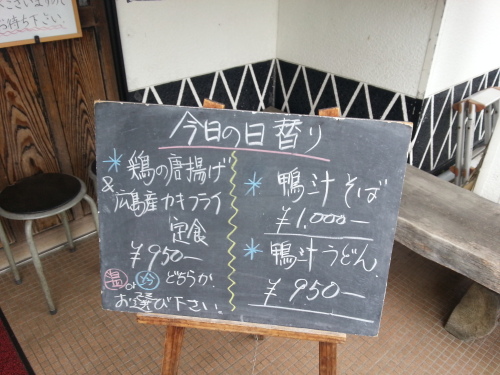 お待ち下さい
今日の日替り
*鶏の唐揚げ
&広島産カキフライ
定食
¥950-
温or冷どちらか
お選び下さい.
*鴨汁そば
¥1,000-
*鴨汁うどん.
¥950-